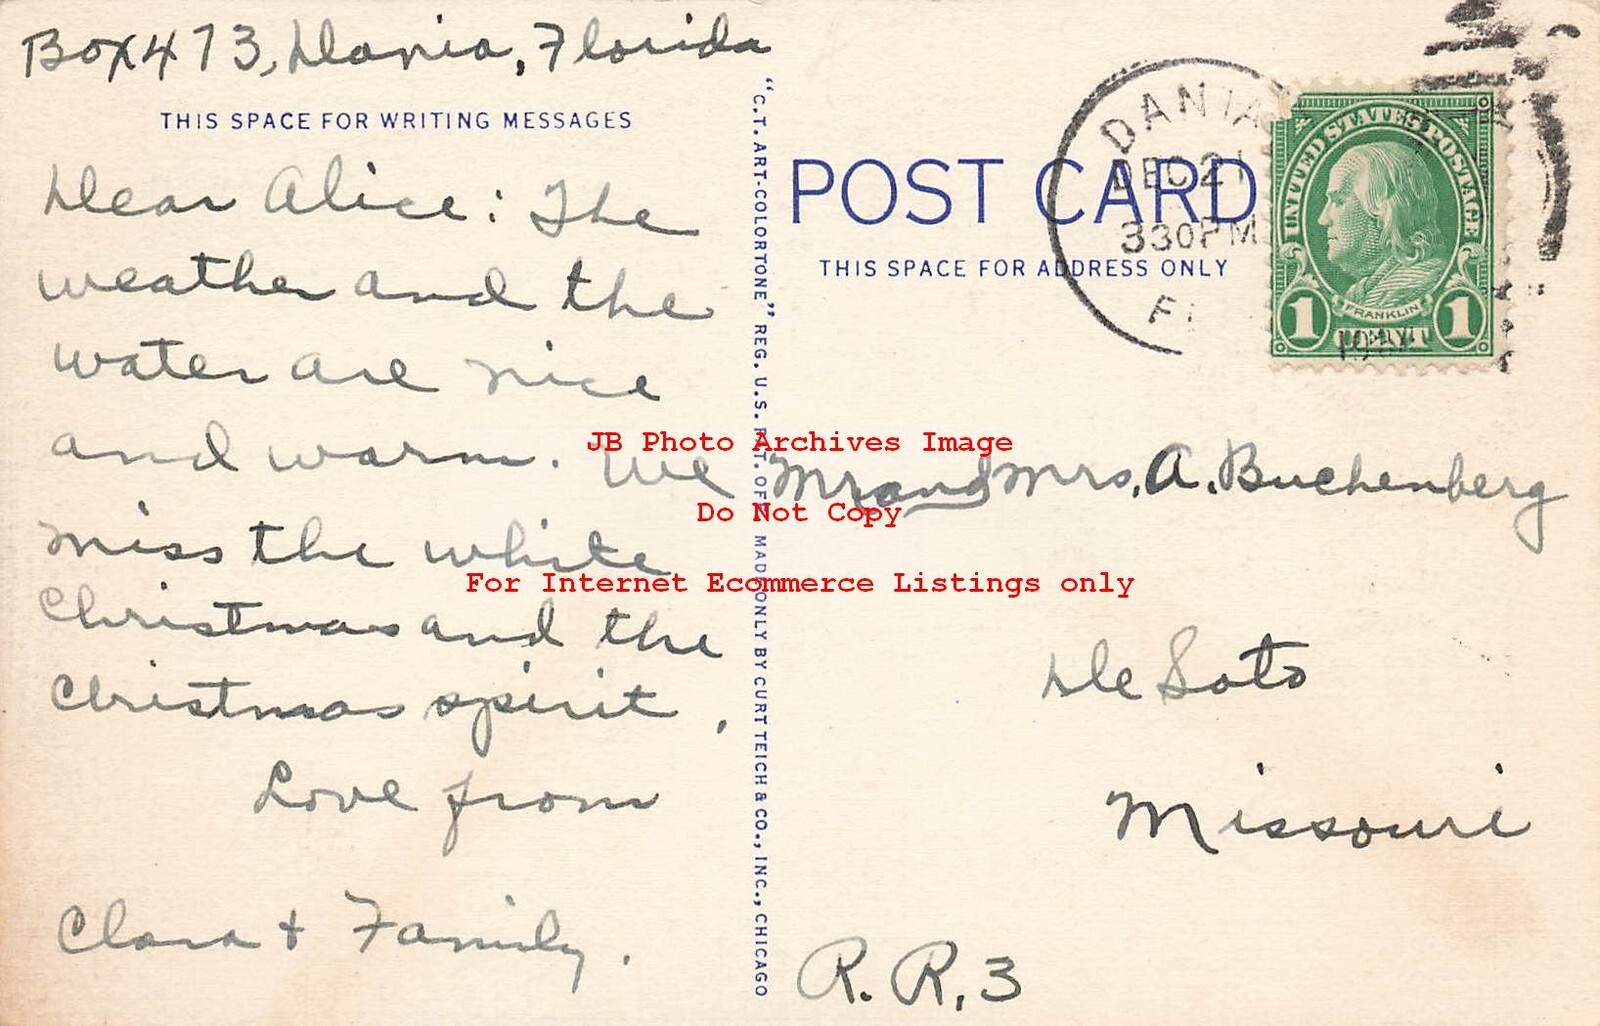 Box 473, Dania, Florida
THIS SPACE FOR WRITING MESSAGES
Dear Alice: The
weather and the
water are nice
and warm. We
miss the white
Christmas and the
Christmas spirit.
Love from
Clara + Family.
"C.T. ART-COLORTONE" REG. U.S. PAT. OFF. MADE ONLY BY CURT TEICH & CO., INC., CHICAGO
POST CARD
THIS SPACE FOR ADDRESS ONLY
DANIA
DEC 21
330 PM
UNITED STATES POSTAGE
FRANKLIN
1 1
Mr and Mrs. A. Buchenberg
De Soto
Missouri
R. R. 3
JB Photo Archives Image
Do Not Copy
For Internet Ecommerce Listings only